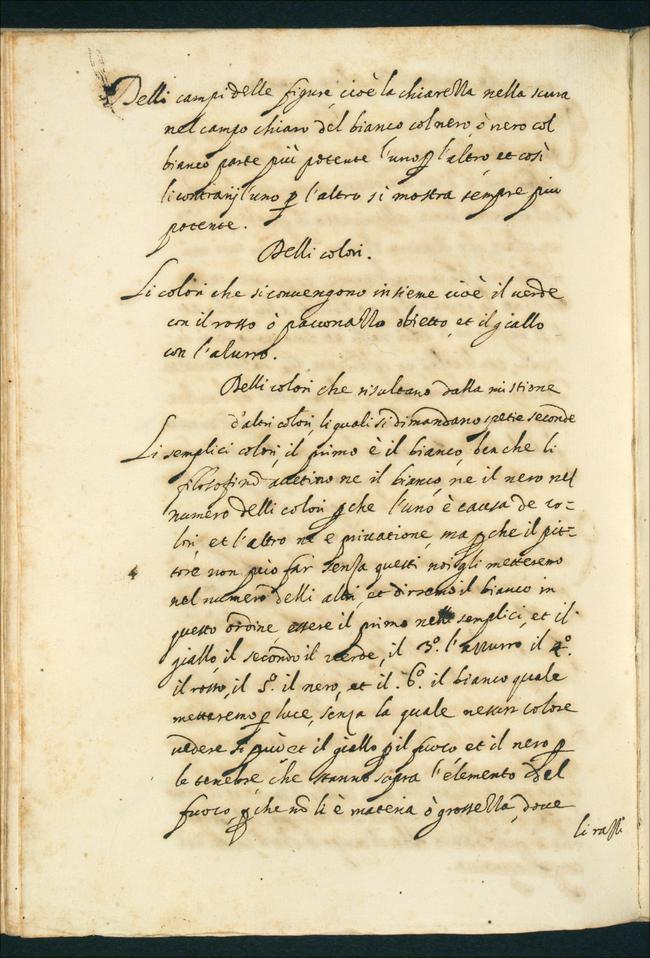 Delli campi delle figure, cioè la chiarezza nella scura
nel campo chiaro del bianco col nero, ò nero col
bianco parte più potente l'uno ꝑ l'altro, et così
li contrarij l'uno ꝑ l'altro si mostra sempre piu
potente.
Delli colori.
Li colori che si convengono insieme cioè il verde
con il rosso ò paonazzo obietto, et il giallo
con l'azurro.
Delli colori che risultano dalla mistione
d'altri colori, li quali si dimandano spetie seconde
Li semplici colori, il primo è il bianco, benche li
filosofi nō acetino ne il bianco, ne il nero nel
numero delli colori ꝑche l'uno è causa de co=
lori, et l'altro ne e privatione, ma ꝑche il pit=
tore non può far senza questi noi gli metteremo
nel numero delli altri, et dirremo il bianco in
questo ordine, essere il primo nelli semplici, et il
giallo, il secondo il verde, il 3º. l'azzurro il 4º.
il rosso, il 5º. il nero, et il .6º. il bianco quale
metteremo ꝑ luce, senza la quale nessun colore
vedere si può et il giallo ꝑ il fuoco et il nero ꝑ
le tenebre, che stanno sopra l'elemento del
fuoco, ꝑche nō li è materia ò grossezza, dove
li razzi